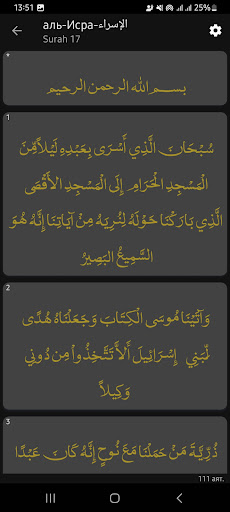 13:51
25%
аль-Исра-الإسراء
Surah 17
*
بسم الله الرحمن الرحيم
1
سُبْحَانَ الَّذِي أَسْرَى بِعَبْدِهِ لَيْلاً مِّنَ
الْمَسْجِدِ الْحَرَامِ إِلَى الْمَسْجِدِ الأَقْصَى
الَّذِي بَارَكْنَا حَوْلَهُ لِنُرِيَهُ مِنْ آيَاتِنَا إِنَّهُ هُوَ
السَّمِيعُ البَصِيرُ
2
وَآتَيْنَا مُوسَى الْكِتَابَ وَجَعَلْنَاهُ هُدًى
لِّبَنِي إِسْرَائِيلَ أَلاَّ تَتَّخِذُواْ مِن دُونِي
وَكِيلاً
3
ذُرِّيَّةَ مَنْ حَمَلْنَا مَعَ نُوحٍ إِنَّهُ كَانَ عَبْدًا
111 аят.